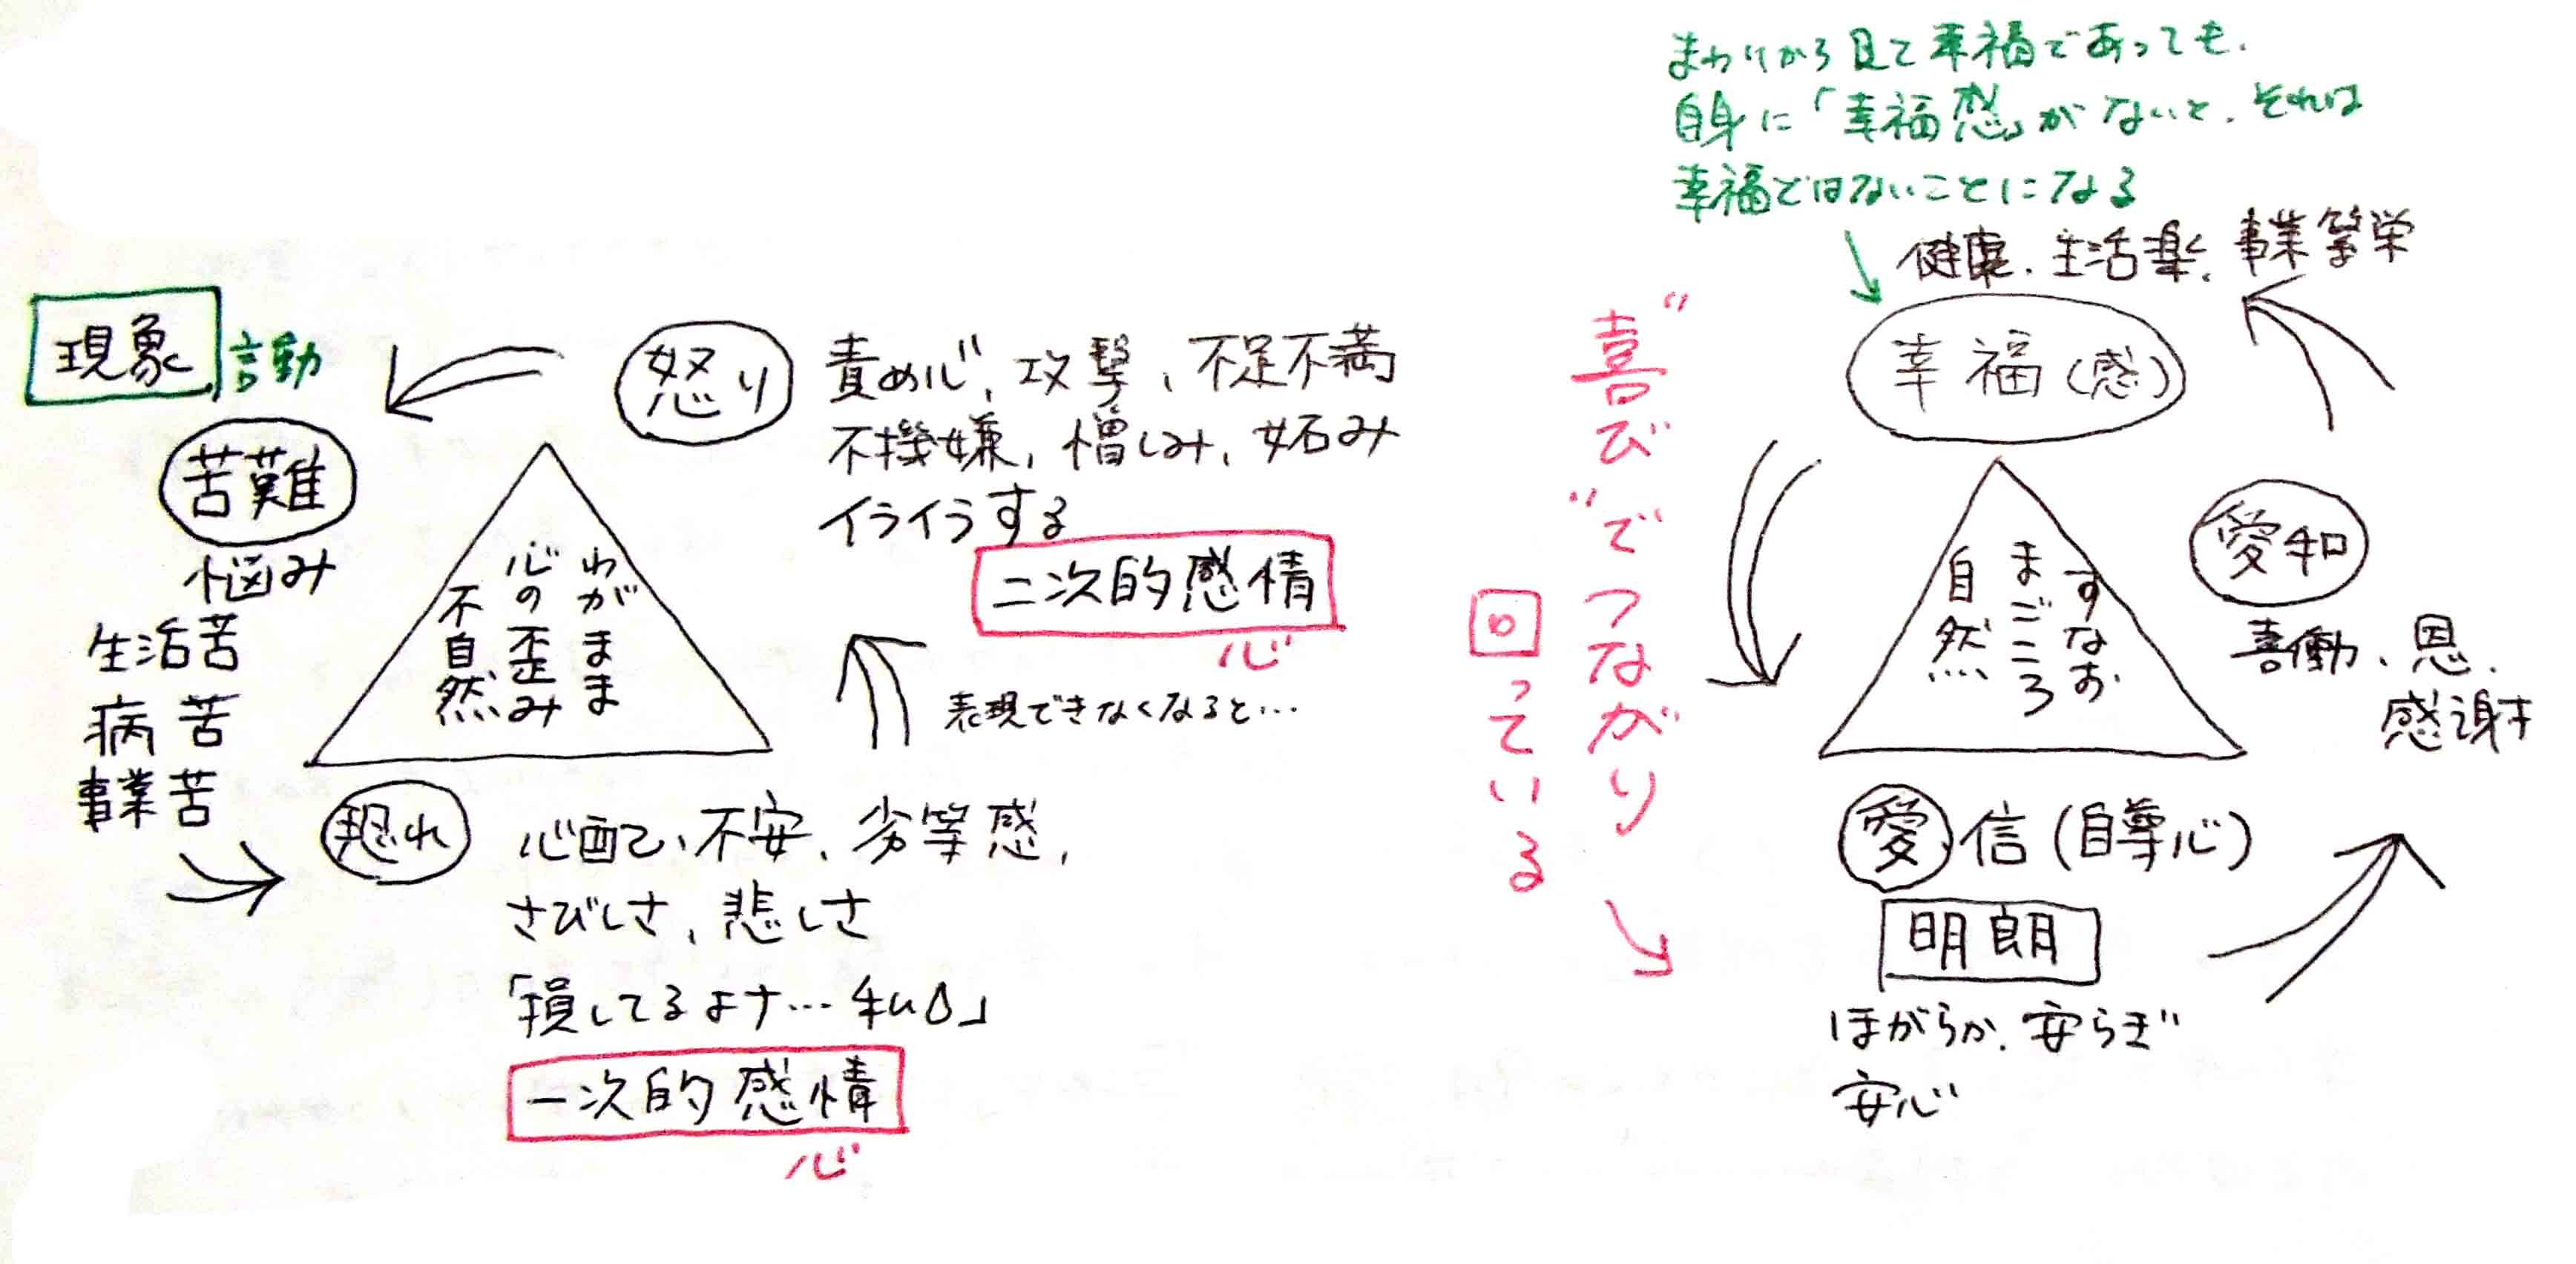 現象 言動
苦難
悩み
生活苦
病苦
事業苦
怒り
責め心、攻撃、不足不満
不機嫌、憎しみ、妬み
イライラする
二次的感情
心
表現できなくなると…
わがまま
心の歪み
不自然
恐れ
心配、不安、劣等感、
さびしさ、悲しさ
「損してるよナ…私ム」
一次的感情
心
まわりから見て幸福であっても、
自身に「幸福感」がないと、それは
幸福ではないことになる
健康、生活楽、事業繁栄
幸福(感)
"喜び"でつながり
回っている
すなお
まごころ
自然
愛和
喜働、恩、
感謝
愛信(自尊心)
明朗
ほがらか、安らぎ
安心